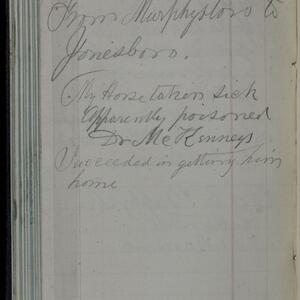 From Murphysboro to
Jonesboro.
My Horse taken sick
apparently poisoned
Dr McKenneys
Succeeded in getting him
home